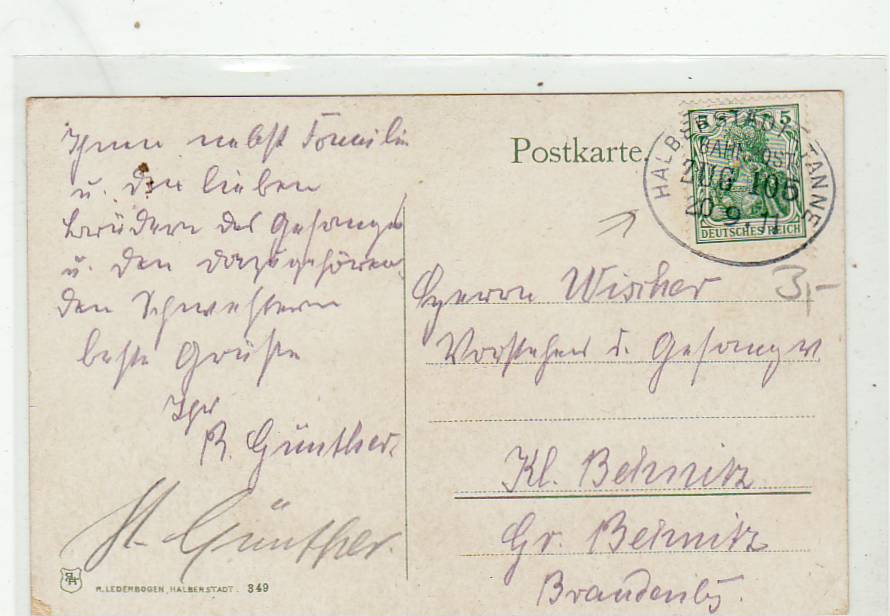 Ihnen nebst Familie
u. den lieben
Brüdern des Gesanges
u. den dazugehören
den Schwestern
beste Grüße
Ihr
R. Günther.
H. Günther.
R. LEDERBOGEN, HALBERSTADT. 349
Postkarte.
HALBERSTADT - TANNE
BAHNPOST
ZUG 105
20 9. 11
5 5
DEUTSCHES REICH
3,-
Herrn Wischer
Vorsteher d. Gesangv
Kl. Behnitz
Gr. Behnitz
Brandenbg.